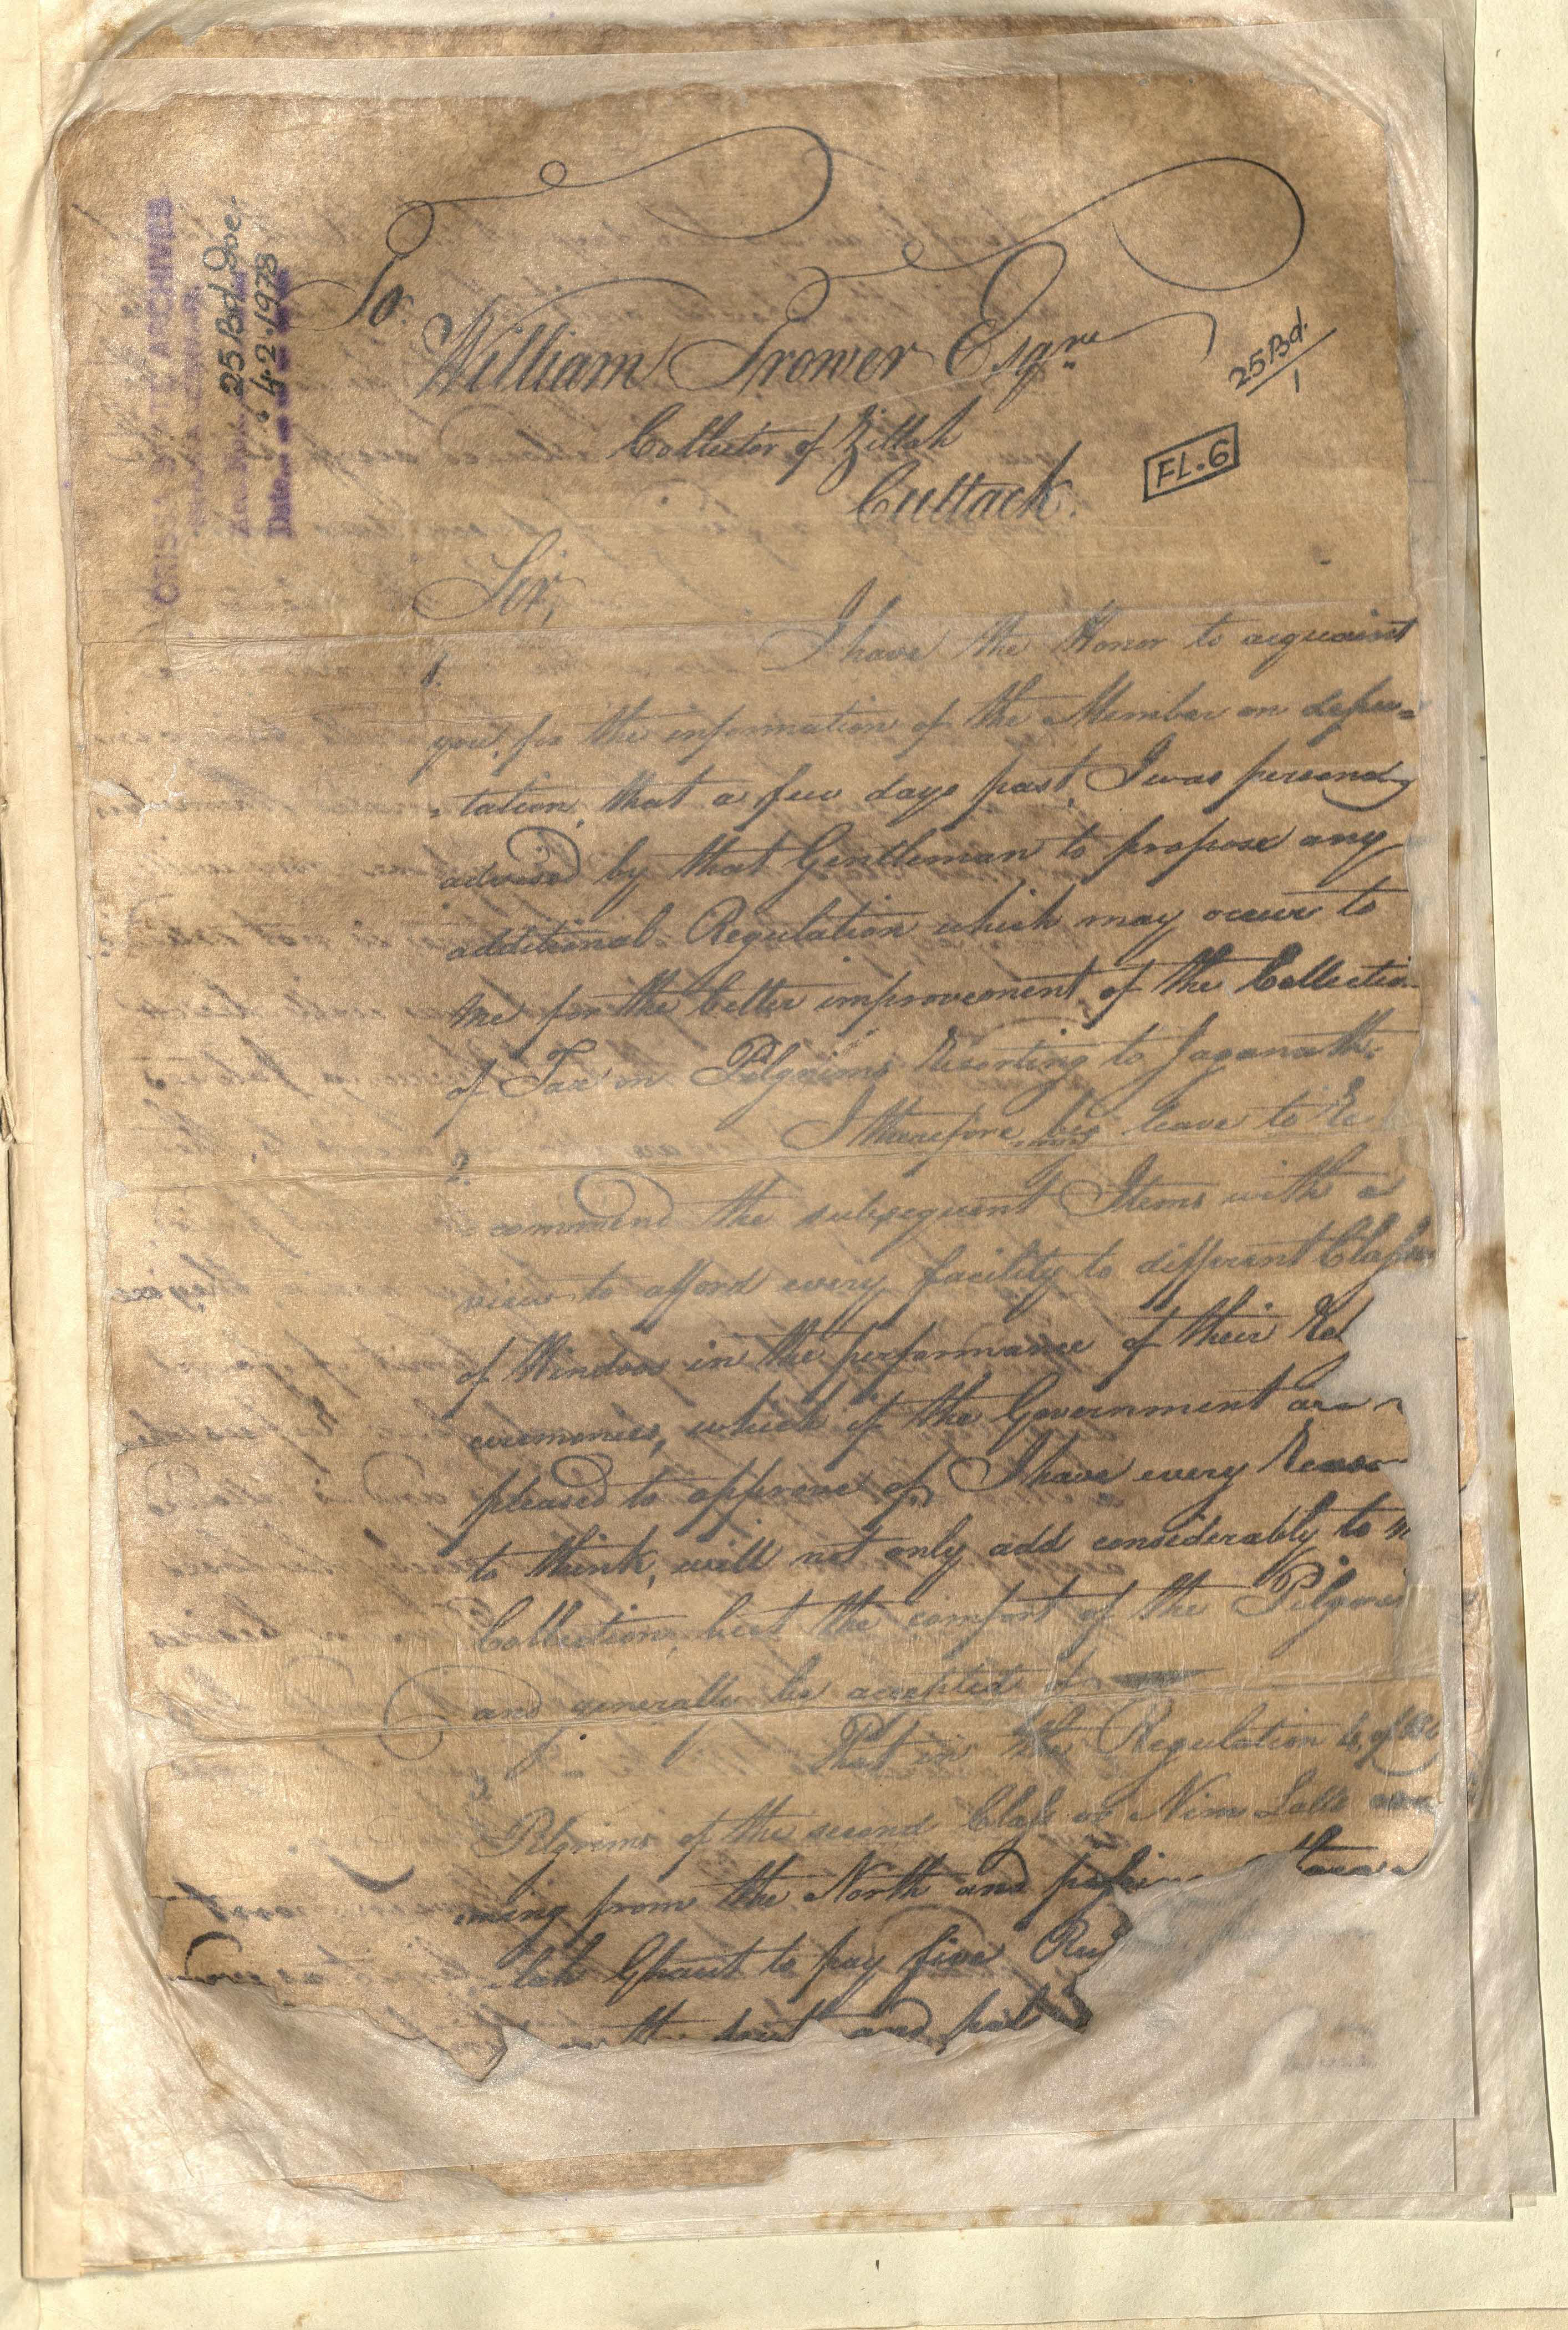 ORISSA STATE ARCHIVES
25 Bd Doc.
4.2.1978
Date
To
William Trower Esqre.
Collector of Zillah
Cuttack.
25 Bd.
1
FL.6
Sir,
1. I have the Honor to acquaint
you, for the information of the Member on depu=
=tation, that a few days past, I was personaly
advised by that Gentleman to propose any
additional Regulation which may occur to
me for the better improvement of the Collection
of Tax on Pilgrims Resorting to Jaganath.
2. I therefore beg leave to Re
commend the subsequent Items with a
view to afford every facility to different Classes
of Hindoos in the performance of their Rel
ceremonies, which if the Government are
pleased to approve of, I have every Reason
to think, will not only add considerably to
Collection, but the comfort of the Pilgrims
and generally be accepted of
3. That in the Regulation 4, of
Pilgrims of the second Class or Nim Lalls
ming from the North and
lah Ghaut to pay five Ru
and